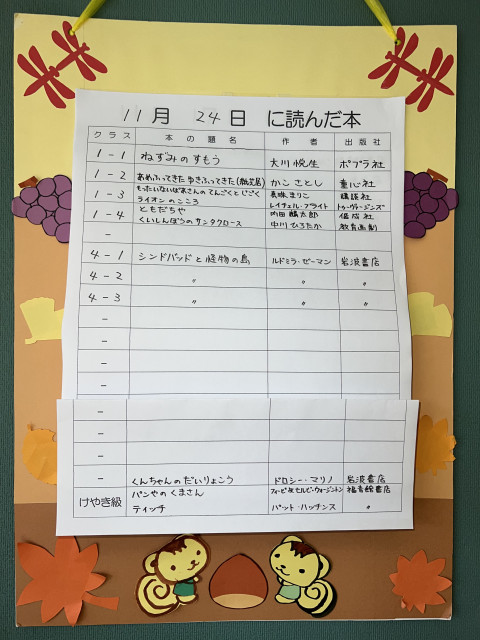 11月 24日 に読んだ本
クラス 本の題名 作者 出版社
1-1 ねずみのすもう 大川悦生 ポプラ社
1-2 あめふってきた ゆきふってきた(紙芝居) かこさとし 童心社
1-3 もったいないばあさんのてんごくとじごく 真珠まりこ 講談社
ライオンのこころ レイチェル・ブライト トゥーヴァージンズ
1-4 ともだちや 内田麟太郎 偕成社
くいしんぼうのサンタクロース 中川ひろたか 教育画劇
-
4-1 シンドバッドと怪物の島 ルドミラ・ゼーマン 岩波書店
4-2 〃 〃 〃
4-3 〃 〃 〃
-
-
-
-
-
-
-
- くんちゃんのだいりょこう ドロシー・マリノ 岩波書店
けやき級 パンやのくまさん フィービとセルビ・ウォージントン 福音館書店
ティッチ パット・ハッチンス 〃